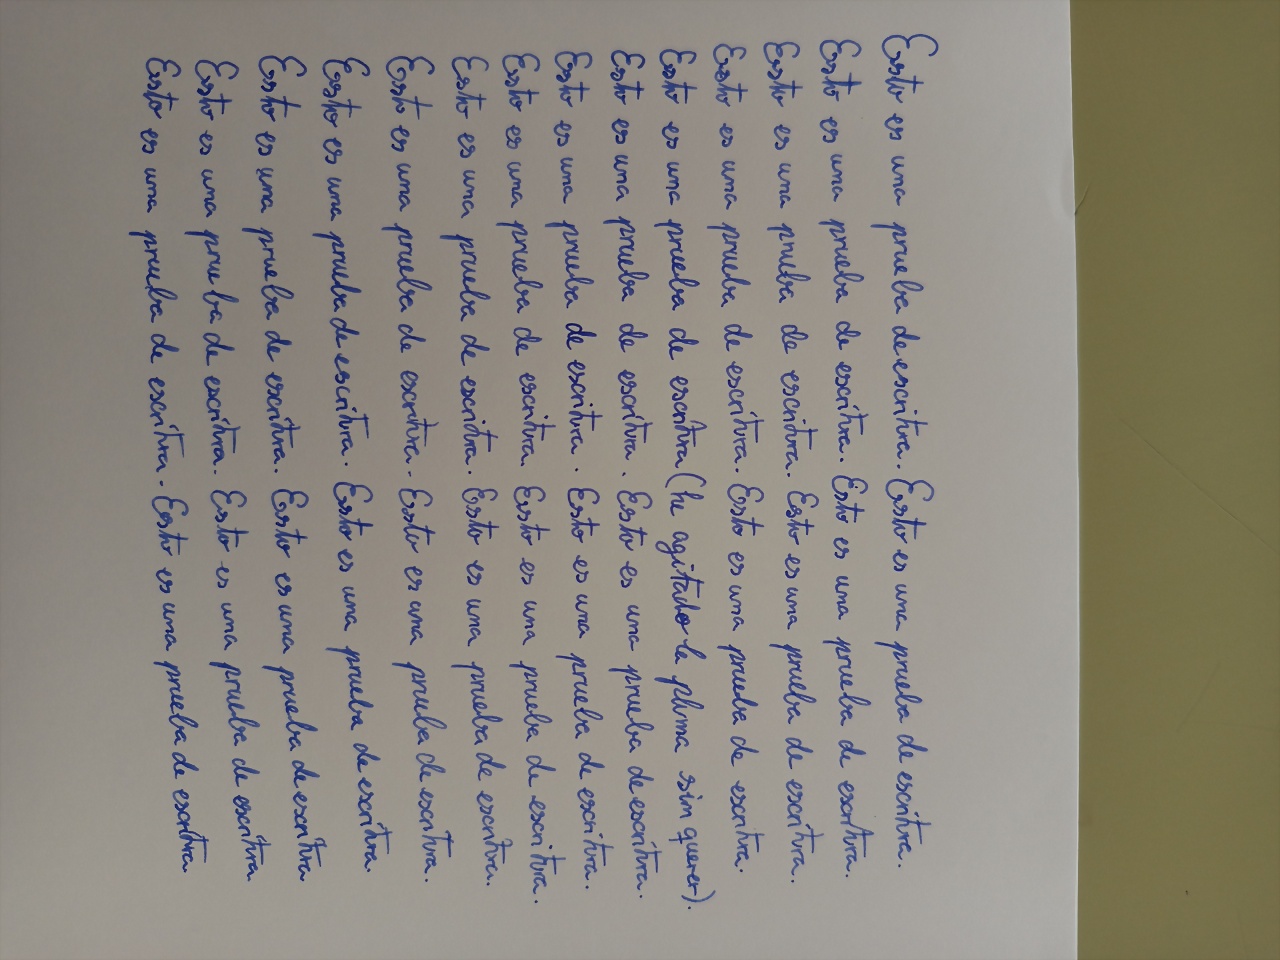 Esto es una prueba de escritura. Esto es una prueba de escritura.
Esto es una prueba de escritura. Esto es una prueba de escritura.
Esto es una prueba de escritura. Esto es una prueba de escritura.
Esto es una prueba de escritura. Esto es una prueba de escritura.
Esto es una prueba de escritura (he agitado la pluma sin querer).
Esto es una prueba de escritura. Esto es una prueba de escritura.
Esto es una prueba de escritura. Esto es una prueba de escritura.
Esto es una prueba de escritura. Esto es una prueba de escritura.
Esto es una prueba de escritura. Esto es una prueba de escritura.
Esto es una prueba de escritura. Esto es una prueba de escritura.
Esto es una prueba de escritura. Esto es una prueba de escritura.
Esto es una prueba de escritura. Esto es una prueba de escritura.
Esto es una prueba de escritura. Esto es una prueba de escritura.
Esto es una prueba de escritura. Esto es una prueba de escritura.